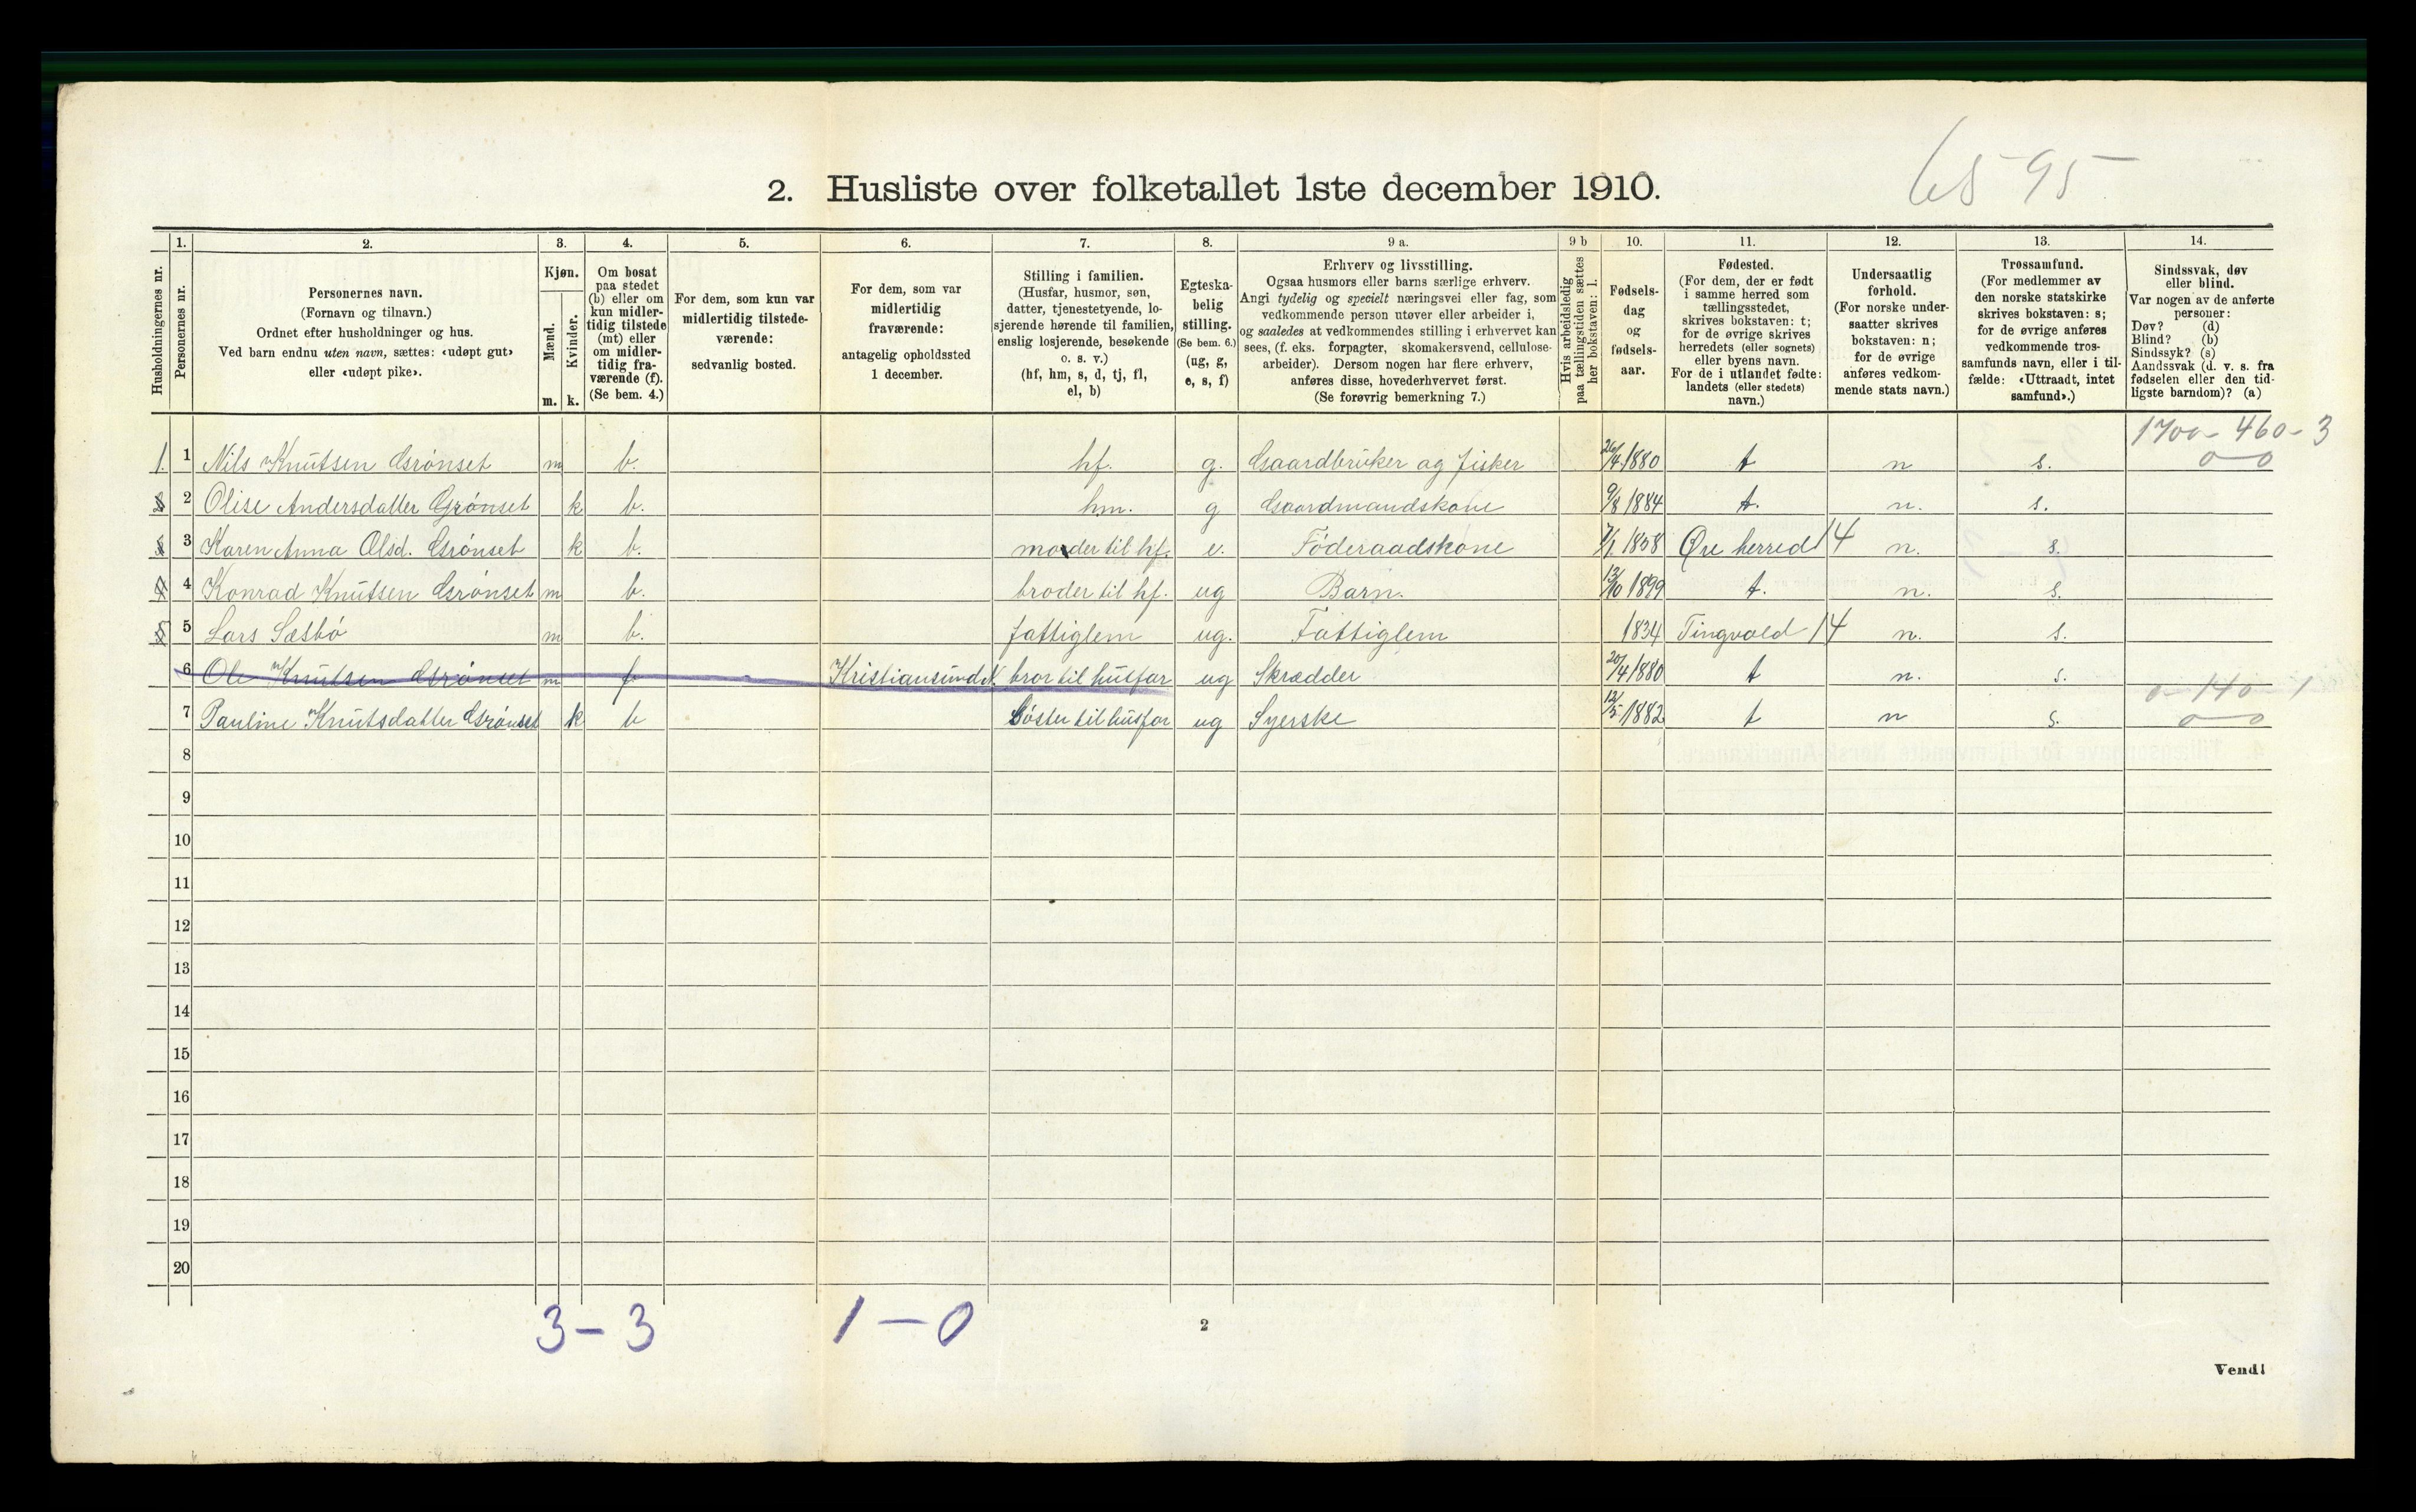 65 95
2. Husliste over folketallet 1ste december 1910.
1. 2. 3. 4. 5. 6. 7. 8. 9 a. 9 b 10. 11. 12. 13. 14.
Husholdningernes nr.
Personernes nr.
Personernes navn.
(Fornavn og tilnavn.)
Ordnet efter husholdninger og hus.
Ved barn endnu uten navn, sættes: «udøpt gut»
eller «udøpt pike».
Kjøn.
Mænd.
Kvinder.
m. k.
Om bosat
paa stedet
(b) eller om
kun midler-
tidig tilstede
(mt) eller
om midler-
tidig fra-
værende (f).
(Se bem. 4.)
For dem, som kun var
midlertidig tilstede-
værende:
sedvanlig bosted.
For dem, som var
midlertidig
fraværende:
antagelig opholdssted
1 december.
Stilling i familien.
(Husfar, husmor, søn,
datter, tjenestetyende, lo-
sjerende hørende til familien,
enslig losjerende, besøkende
o. s. v.)
(hf, hm, s, d, tj, fl,
el, b)
Egteska-
belig
stilling.
(Se bem. 6.)
(ug, g,
e, s, f)
Erhverv og livsstilling.
Ogsaa husmors eller barns særlige erhverv.
Angi tydelig og specielt næringsvei eller fag, som
vedkommende person utøver eller arbeider i,
og saaledes at vedkommendes stilling i erhvervet kan
sees, (f. eks. forpagter, skomakersvend, cellulose-
arbeider). Dersom nogen har flere erhverv,
anføres disse, hovederhvervet først.
(Se forøvrig bemerkning 7.)
Hvis arbeidsledig
paa tællingstiden sættes
her bokstaven: l.
Fødsels-
dag
og
fødsels-
aar.
Fødested.
(For dem, der er født
i samme herred som
tællingsstedet,
skrives bokstaven: t;
for de øvrige skrives
herredets (eller sognets)
eller byens navn.
For de i utlandet fødte:
landets (eller stedets)
navn.)
Undersaatlig
forhold.
(For norske under-
saatter skrives
bokstaven: n;
for de øvrige
anføres vedkom-
mende stats navn.)
Trossamfund.
(For medlemmer av
den norske statskirke
skrives bokstaven: s;
for de øvrige anføres
vedkommende tros-
samfunds navn, eller i til-
fælde: «Uttraadt, intet
samfund».)
Sindssvak, døv
eller blind.
Var nogen av de anførte
personer:
Døv? (d)
Blind? (b)
Sindssyk? (s)
Aandssvak (d. v. s. fra
fødselen eller den tid-
ligste barndom)? (a)
1700 - 460 - 3
1. 1 Nils Knutsen Grønset m b. hf. g. Gaardbruker og fisker 26/4 1880 t n s. 0 - 0
2 Olise Andersdatter Grønset k b. hm. g Gaardmandskone 9/8 1884 t. n. s.
3 Karen Anna Olsd. Grønset k b. moder til hf. e. Føderaadskone 7/1 1838 Øre herred 14 n. s.
4 Konrad Knutsen Grønset m b. broder til hf. ug Barn. 13/10 1899 t. n. s.
5 Lars Sæsbø m b. fattiglem ug. Fattiglem 1834 Tingvold 14 n. s.
6 Ole Knutsen Grønset m f Kristiansund N. bror til husfar ug Skrædder 20/4 1880 t n. s.
0 - 140 - 1
7 Pauline Knutsdatter Grønset k b Søster til husfar ug Syerske 12/5 1882 t n s. 0 - 0
8
9
10
11
12
13
14
15
16
17
18
19
20
3 - 3 1 - 0
2
Vend!